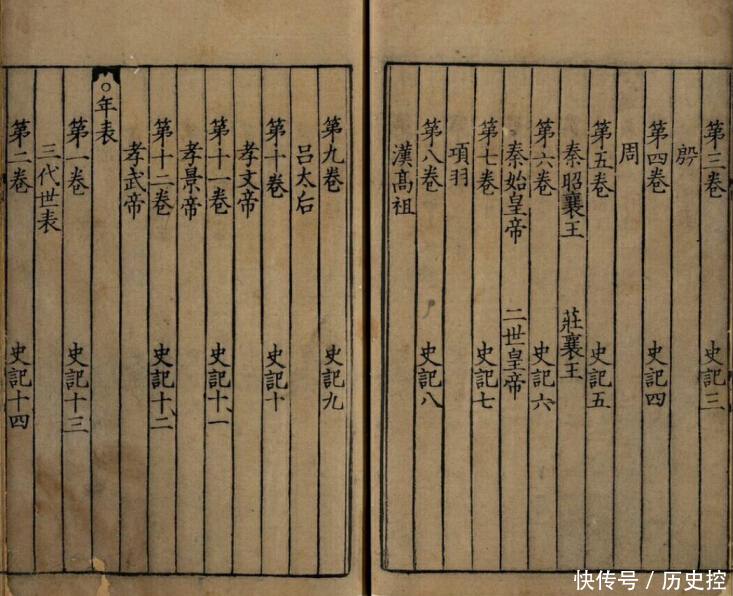 第三卷 史記三
殷
第四卷 史記四
周
第五卷 史記五
秦昭襄王 莊襄王
第六卷 史記六
秦始皇帝 二世皇帝
第七卷 史記七
項羽
第八卷 史記八
漢高祖
第九卷 史記九
吕太后
第十卷 史記十
孝文帝
第十一卷 史記十一
孝景帝
第十二卷 史記十二
孝武帝
○年表
第一卷 史記十三
三代世表
第二卷 史記十四
快传号/历史控